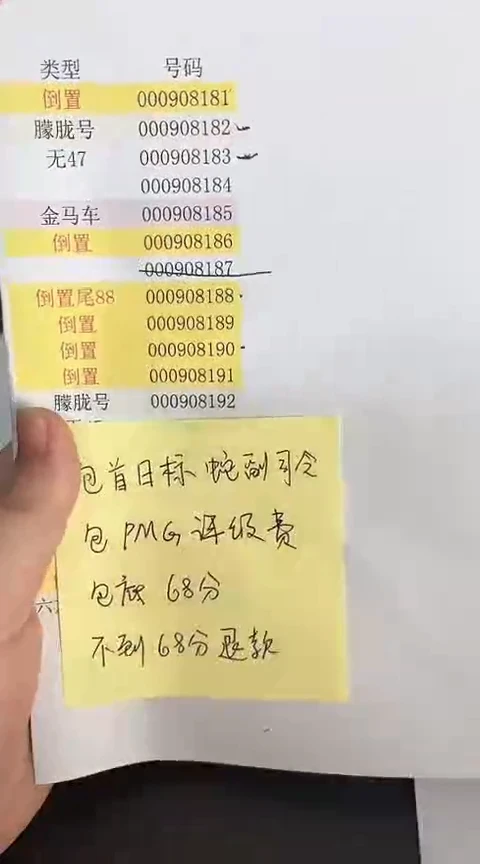 类型 号码
倒置 000908181
朦胧号 000908182
无47 000908183
000908184
金马车 000908185
倒置 000908186
000908187
倒置尾88 000908188
倒置 000908189
倒置 000908190
倒置 000908191
朦胧号 000908192
包首日标 蛇副司令
包 PMG 评级费
包底 68分
不到68分退款
六